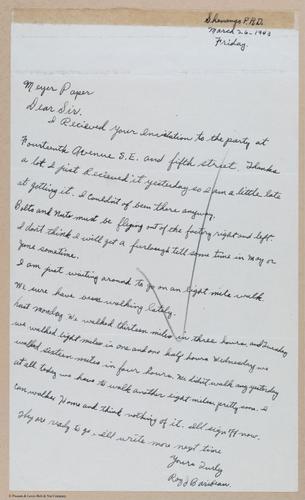 Shenango P.R.D.
March 26-1943
Friday.
Meyer Paper
Dear Sir.
I Recieved your Invitation to the party at
Fourteenth Avenue S.E. and fifth street. Thanks
a lot I just Recieved it yesterday so I am a little late
at getting it. I couldnt of been there anyway.
Bolts and Nuts must be flying out of the factory right and left.
I dont think I will get a furlough till some time in May or
June sometime.
I am just waiting around to go on an eight mile walk.
We sure have been walking lately.
Last Monday we walked thirteen miles in three hours, and Tuesday
we walked eight miles in one and one half hours Wednesday we
walked sixteen miles in four hours. We didnt walk any yesterday
at all today we have to walk another eight miles, pretty soon. I
can walk Home and think nothing of it. Ill sign off now.
They are realy to go. Ill write more next time
Yours Truly
Roy J Baribeau